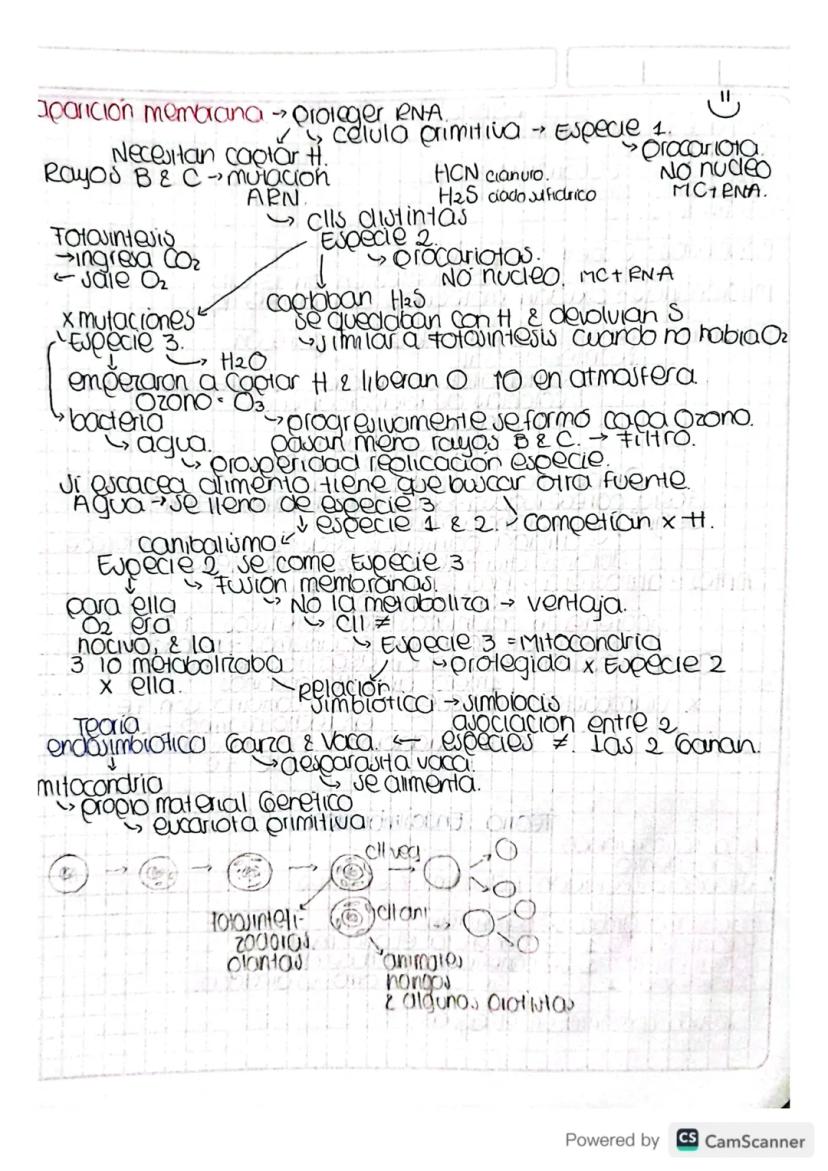 aparición membrana → proteger RNA.
↳ célula primitiva → Especie 1.
Necesitan captar H.
↳ procariota.
No nucleo
MC + RNA.
Rayos B & C → mutación
ARN.
HCN cianuro.
H2S
↳ clls distintas
Especie 2.
↳ procariotas.
No nucleo, MC + RNA
Fotosintesis
→ ingresa CO2
← sale O2
captaban H2S
se quedaban con H & devolvian S
↳ similar a fotosintesis cuando no habia O2
x mutaciones
Especie 3.
→ H2O
empezaron a captar H & liberan O en atmosfera.
Ozono = O3
bacteria
↳ agua.
→ progresivamente se formó capa Ozono.
pasan meno rayos B & C. → Filtro.
↳ prosperidad replicación especie.
si escacea alimento tiene que buscar otra fuente.
Agua → se lleno de especie 3
↓ especie 1 & 2. → competian x H.
canibalismo
Especie 2 se come Especie 3
↳ Fusion membranas.
para ella
O2 era
nocivo, & la
3 lo metabolizaba
x ella.
↳ No la metaboliza → ventaja.
↳ Cll ≠
↳ Especie 3 = Mitocondria
↳ protegida x Especie 2
Relación
simbiotica → simbiocis
asociacion entre 2
especies ≠. las 2 Ganan.
Teoria
endosimbiotica
Garza & Vaca. ←
↳ desparasita vaca.
↳ se alimenta.
mitocondria
↳ propio material Genetico
↳ eucariota primitiva
cll veg
cll ani
fotosinteti-
zadoras
plantas
animales
hongos
& algunos protistas
Powered by CS CamScanner